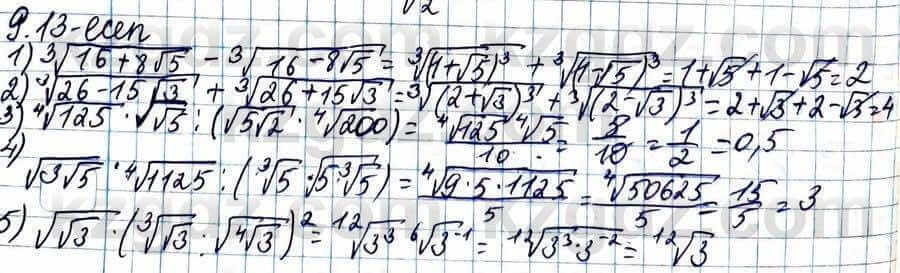 √2
9.13-есеп
1) ∛(16+8√5) - ∛(16-8√5) = ∛((1+√5)³) + ∛((1-√5)³) = 1+√5+1-√5=2
2) ∛(26-15√3) + ∛(26+15√3) = ∛((2+√3)³) + ∛((2-√3)³) = 2+√3+2-√3=4
3) ⁴√125 · √√5 : (√5√2 · ⁴√200) = (⁴√125 ⁴√5)/10 = 5/10 = 1/2 = 0,5
4)
√3√5 · ⁴√1125 : (³√5 · √5·³√5) = ⁴√(9·5·1125)/5 = ⁴√50625/5 = 15/5 = 3
5) √√3 · (³√√3 · √⁴√3)² = ¹²√3³ ⁶√3⁻¹ = ¹²√(3³·3⁻²) = ¹²√3